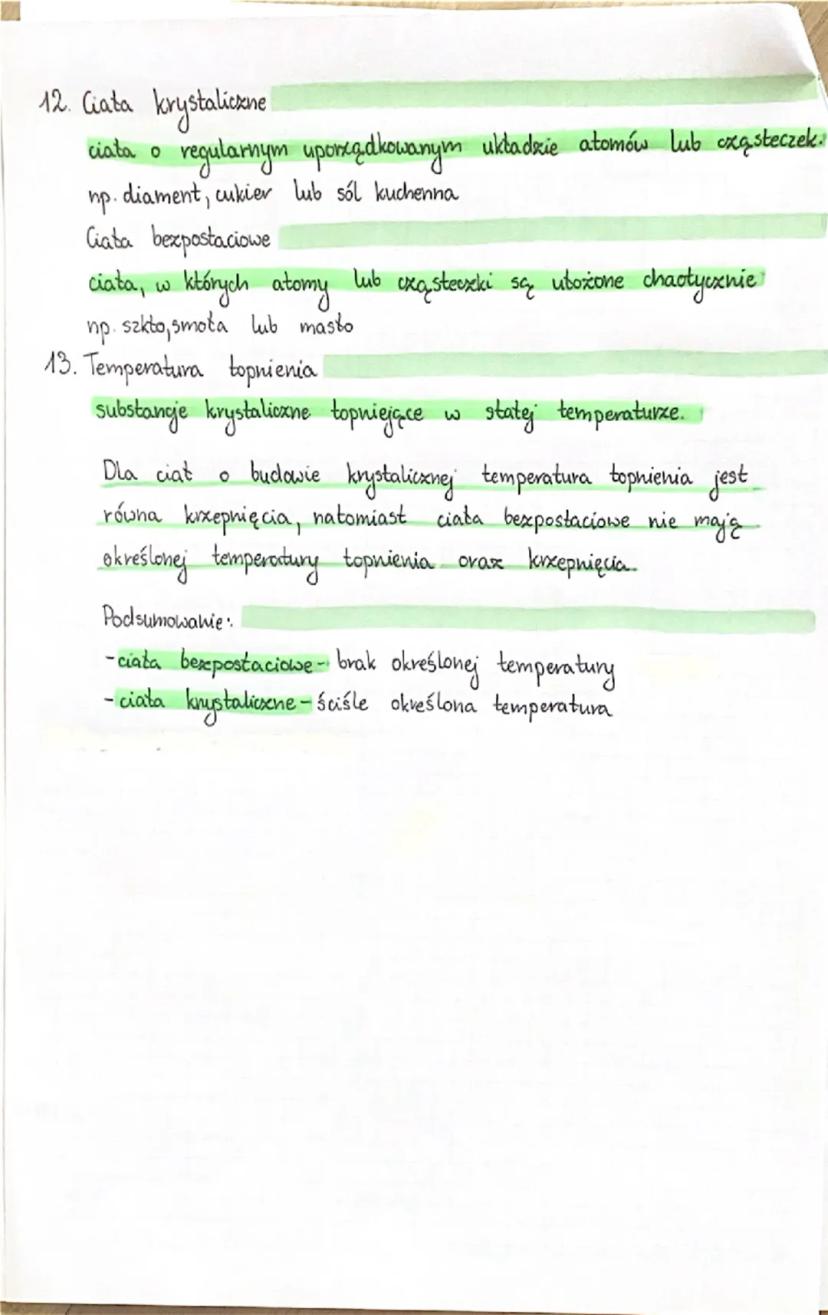 12. Ciała krystaliczne
ciała o regularnym uporządkowanym układzie atomów lub cząsteczek.
np. diament, cukier lub sól kuchenna
Ciała bezpostaciowe
ciała, w których atomy lub cząsteczki są ułożone chaotycznie
np. szkło, smoła lub masło
13. Temperatura topnienia
substancje krystaliczne topniejące w stałej temperaturze.
Dla ciał o budowie krystalicznej temperatura topnienia jest
równa krzepnięcia, natomiast ciała bezpostaciowe nie mają
określonej temperatury topnienia oraz krzepnięcia.
Podsumowanie:
-ciała bezpostaciowe- brak określonej temperatury
-ciała krystaliczne- ściśle określona temperatura